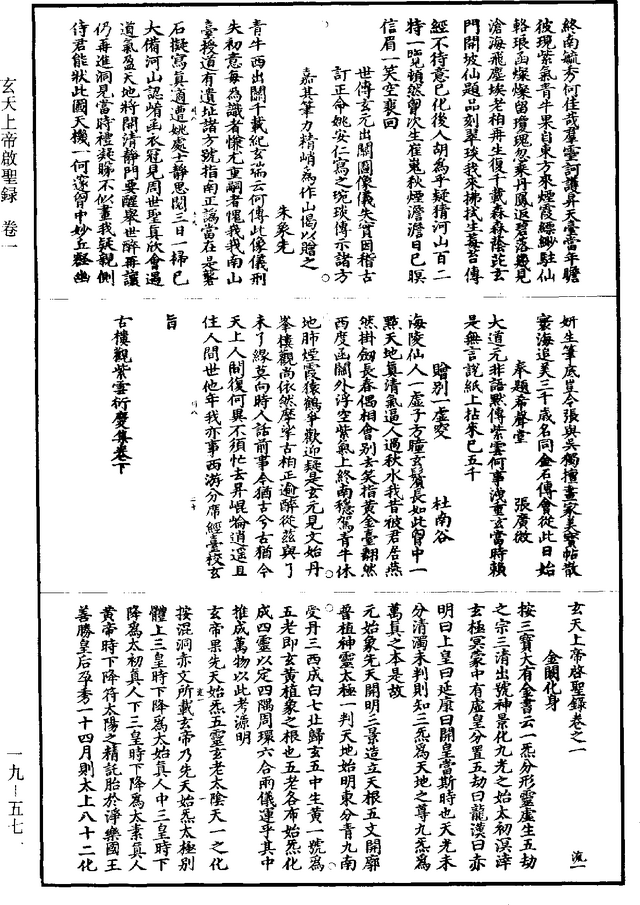 玄天上帝啟聖録 卷一
一九—五七一
終南毓秀何佳哉羣靈訶護昇天臺當年瞻
彼現紫氣青牛果自東方來煙霞縹緲駐仙
輅琅函燦燦留瓊瑰忽乘丹鳳返碧落幾見
滄海飛塵埃老柏再生復千載森森蔭詫玄
門開坡仙題品刻翠琰我來拂拭生莓苔傳
經不待意已化後人胡為乎疑猜河山百二
特一覽頓然胷次生崔嵬秋煙澹澹日已暝
信眉一笑空裵回
世傳玄元出關圖像儀失實因稽古
訂正命姚安仁寫之琬琰傳示諸方
嘉其筆力精峭為作山偈以贈之
朱象先
青牛西出關千載紀玄瑞云何傳此像儀刑
失初意每為識者慊尤重嗣者愧我我南山
臺授道有遺址諸方號指南正譌當在是礱
石擬寫真適遭姚處士靜思閱三日一掃已
大備河山認崤函衣冠見周世聖真欣會遇
道氣盈天地將開清靜門要醒衆世醉再讓
仍再進洞見當時禮凝睇不似畫我疑親侧
侍君能狀此圖天機一何邃胷中妙丘壑幽
妍生筆底豈令張與吳獨擅畫家美寶帖散
寰海追美三千歲名同金石傳會從此日始
奉題希聲堂 張廣微
大道元非語默傳紫雲何事洩重玄當時賴
是無言說紙上拈來已五千
贈别一虛奕 杜南谷
海陵仙人一虛子方瞳玄鬢長如此胷中一
點天地真清氣逼人過秋水我昔被君居燕
然掛劒長春偶相會别去笑指黄金臺翻然
西度函關外浮空紫氣上終南穩駕青牛休
地肺煙霞猿鶴爭歡迎疑是玄元見文始丹
峯樓觀尚依然摩挲古柏正逾醉從兹與了
未了緣莫向時人話前事今猶古兮古猶今
天上人間復何異不須忙去昇崐崘逍遥且
住人間世他年我亦事西游分席經臺校玄
旨
古樓觀紫雲衍慶集卷下
玄天上帝啓聖録卷之一 流一
金闕化身
按三寶大有金書云一炁分形靈虛生五劫
之宗三清出號神景化九光之始太初溟涬
玄極冥蒙中有虛皇分置五劫曰龍漢曰赤
明曰上皇曰延康曰開皇當斯時也天光未
分清濁未判則知三炁為天地之尊九炁爲
萬真之本是故
元始象先天開明三景造立天根五文開廓
普植神靈太極一判天地始明東分青九南
受丹三西成白七北歸玄五中生黄一號為
五老即玄黄植象之根也五老各布始炁化
成四靈以定四隅周環六合兩儀運乎其中
推成萬物以此考源明
玄帝果先天始炁五靈玄老太陰天一之化
按混洞赤文所載玄帝乃先天始炁太極别
體上三皇時下降為太始真人中三皇時下
降爲太初真人下三皇時下降為太素真人
黄帝時下降符太陽之精託胎於淨樂國王
善勝皇后孕秀一十四月則太上八十二化